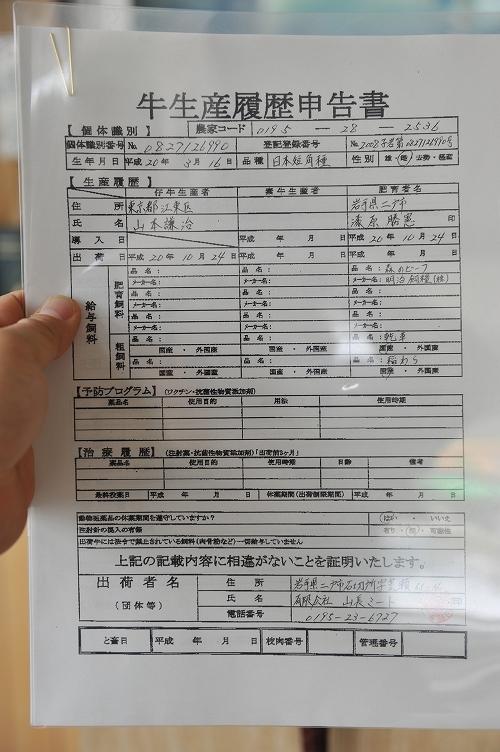 牛生産履歴申告書
【個体識別】 農家コード 0195 — 28 — 2536
個体識別番号 № 0827126990 登記登録番号 № 2008子若第0827126990号
生年月日 平成 20年 3月 16日 品種 日本短角種 性別 雄・雌・去勢・経産
【生産履歴】
仔牛生産者 素牛生産者 肥育者名
住所 東京都江東区 岩手県二戸市
氏名 山本謙治 漆原勝憲 印
導入日 平成 年 月 日 平成 20年 10月 24日
出荷日 平成 20年 10月 24日 平成 年 月 日 平成 年 月 日
給与飼料 肥育飼料 品名: 品名: 品名: 森のビーフ
メーカー名: メーカー名: メーカー名: 明治飼糧(株)
品名: 品名: 品名:
メーカー名: メーカー名: メーカー名:
品名: 品名: 品名:
メーカー名: メーカー名: メーカー名:
粗飼料 品名: 品名: 品名: 乾草
国産・外国産 国産・外国産 国産・外国産
品名: 品名: 品名: 稲わら
国産・外国産 国産・外国産 国産・外国産
【予防プログラム】 (ワクチン・抗菌性物質添加剤)
薬品名 使用目的 用法 使用時期
【治療履歴】 (注射薬・抗菌性物質添加剤)「出荷前3ヶ月」
薬品名 使用目的 使用時期 日齢 備考
最終投薬日 平成 年 月 日 休薬期間(出荷制限期間) 平成 年 月 日
動物医薬品の休薬期間を遵守していますか? はい ・ いいえ
注射針の混入の有無 有り・無・可能性
出荷牛には法令で禁止されている飼料(肉骨粉など)一切給与していません
上記の記載内容に相違がないことを証明いたします。
出荷者名 (団体等) 住所 岩手県二戸市石切所字荒瀬
氏名 有限会社 山長ミート 印
電話番号 0195-23-6727
と畜日 平成 年 月 日 枝肉番号 管理番号